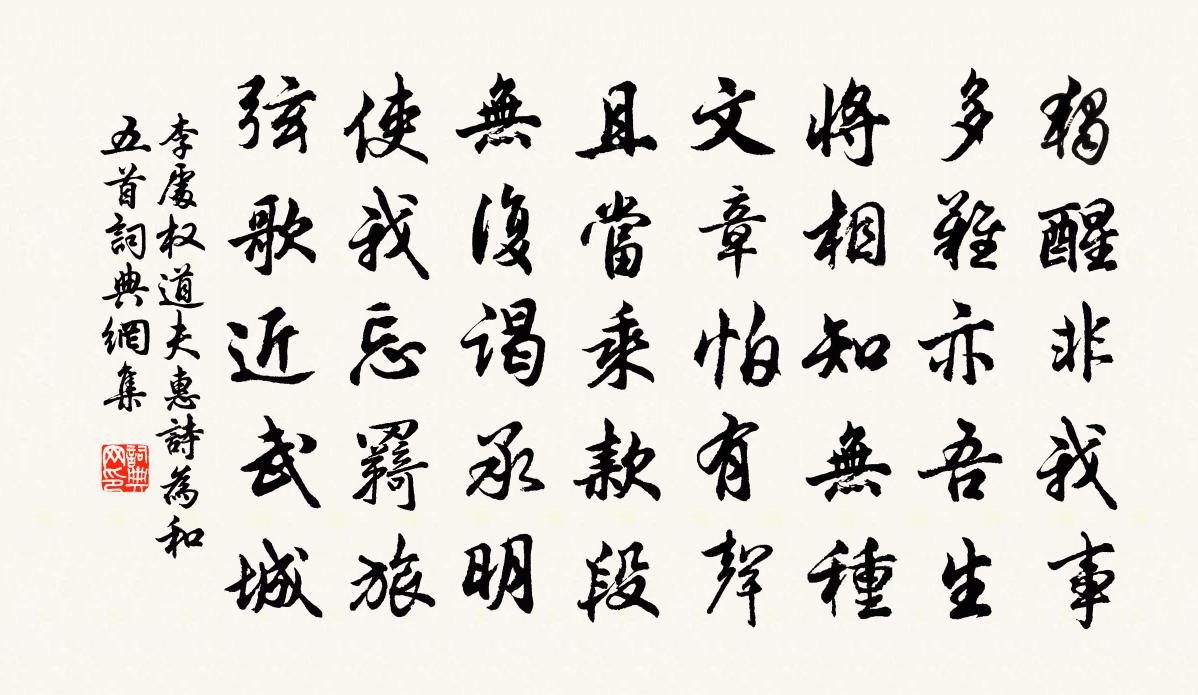 獨醒非我事
多難亦吾生
將相知無種
文章怕有聲
且當乘款段
無復謁承明
使我忘羇旅
弦歌近武城
李處权道夫惠詩為和
五首詞典網集
詞典网印